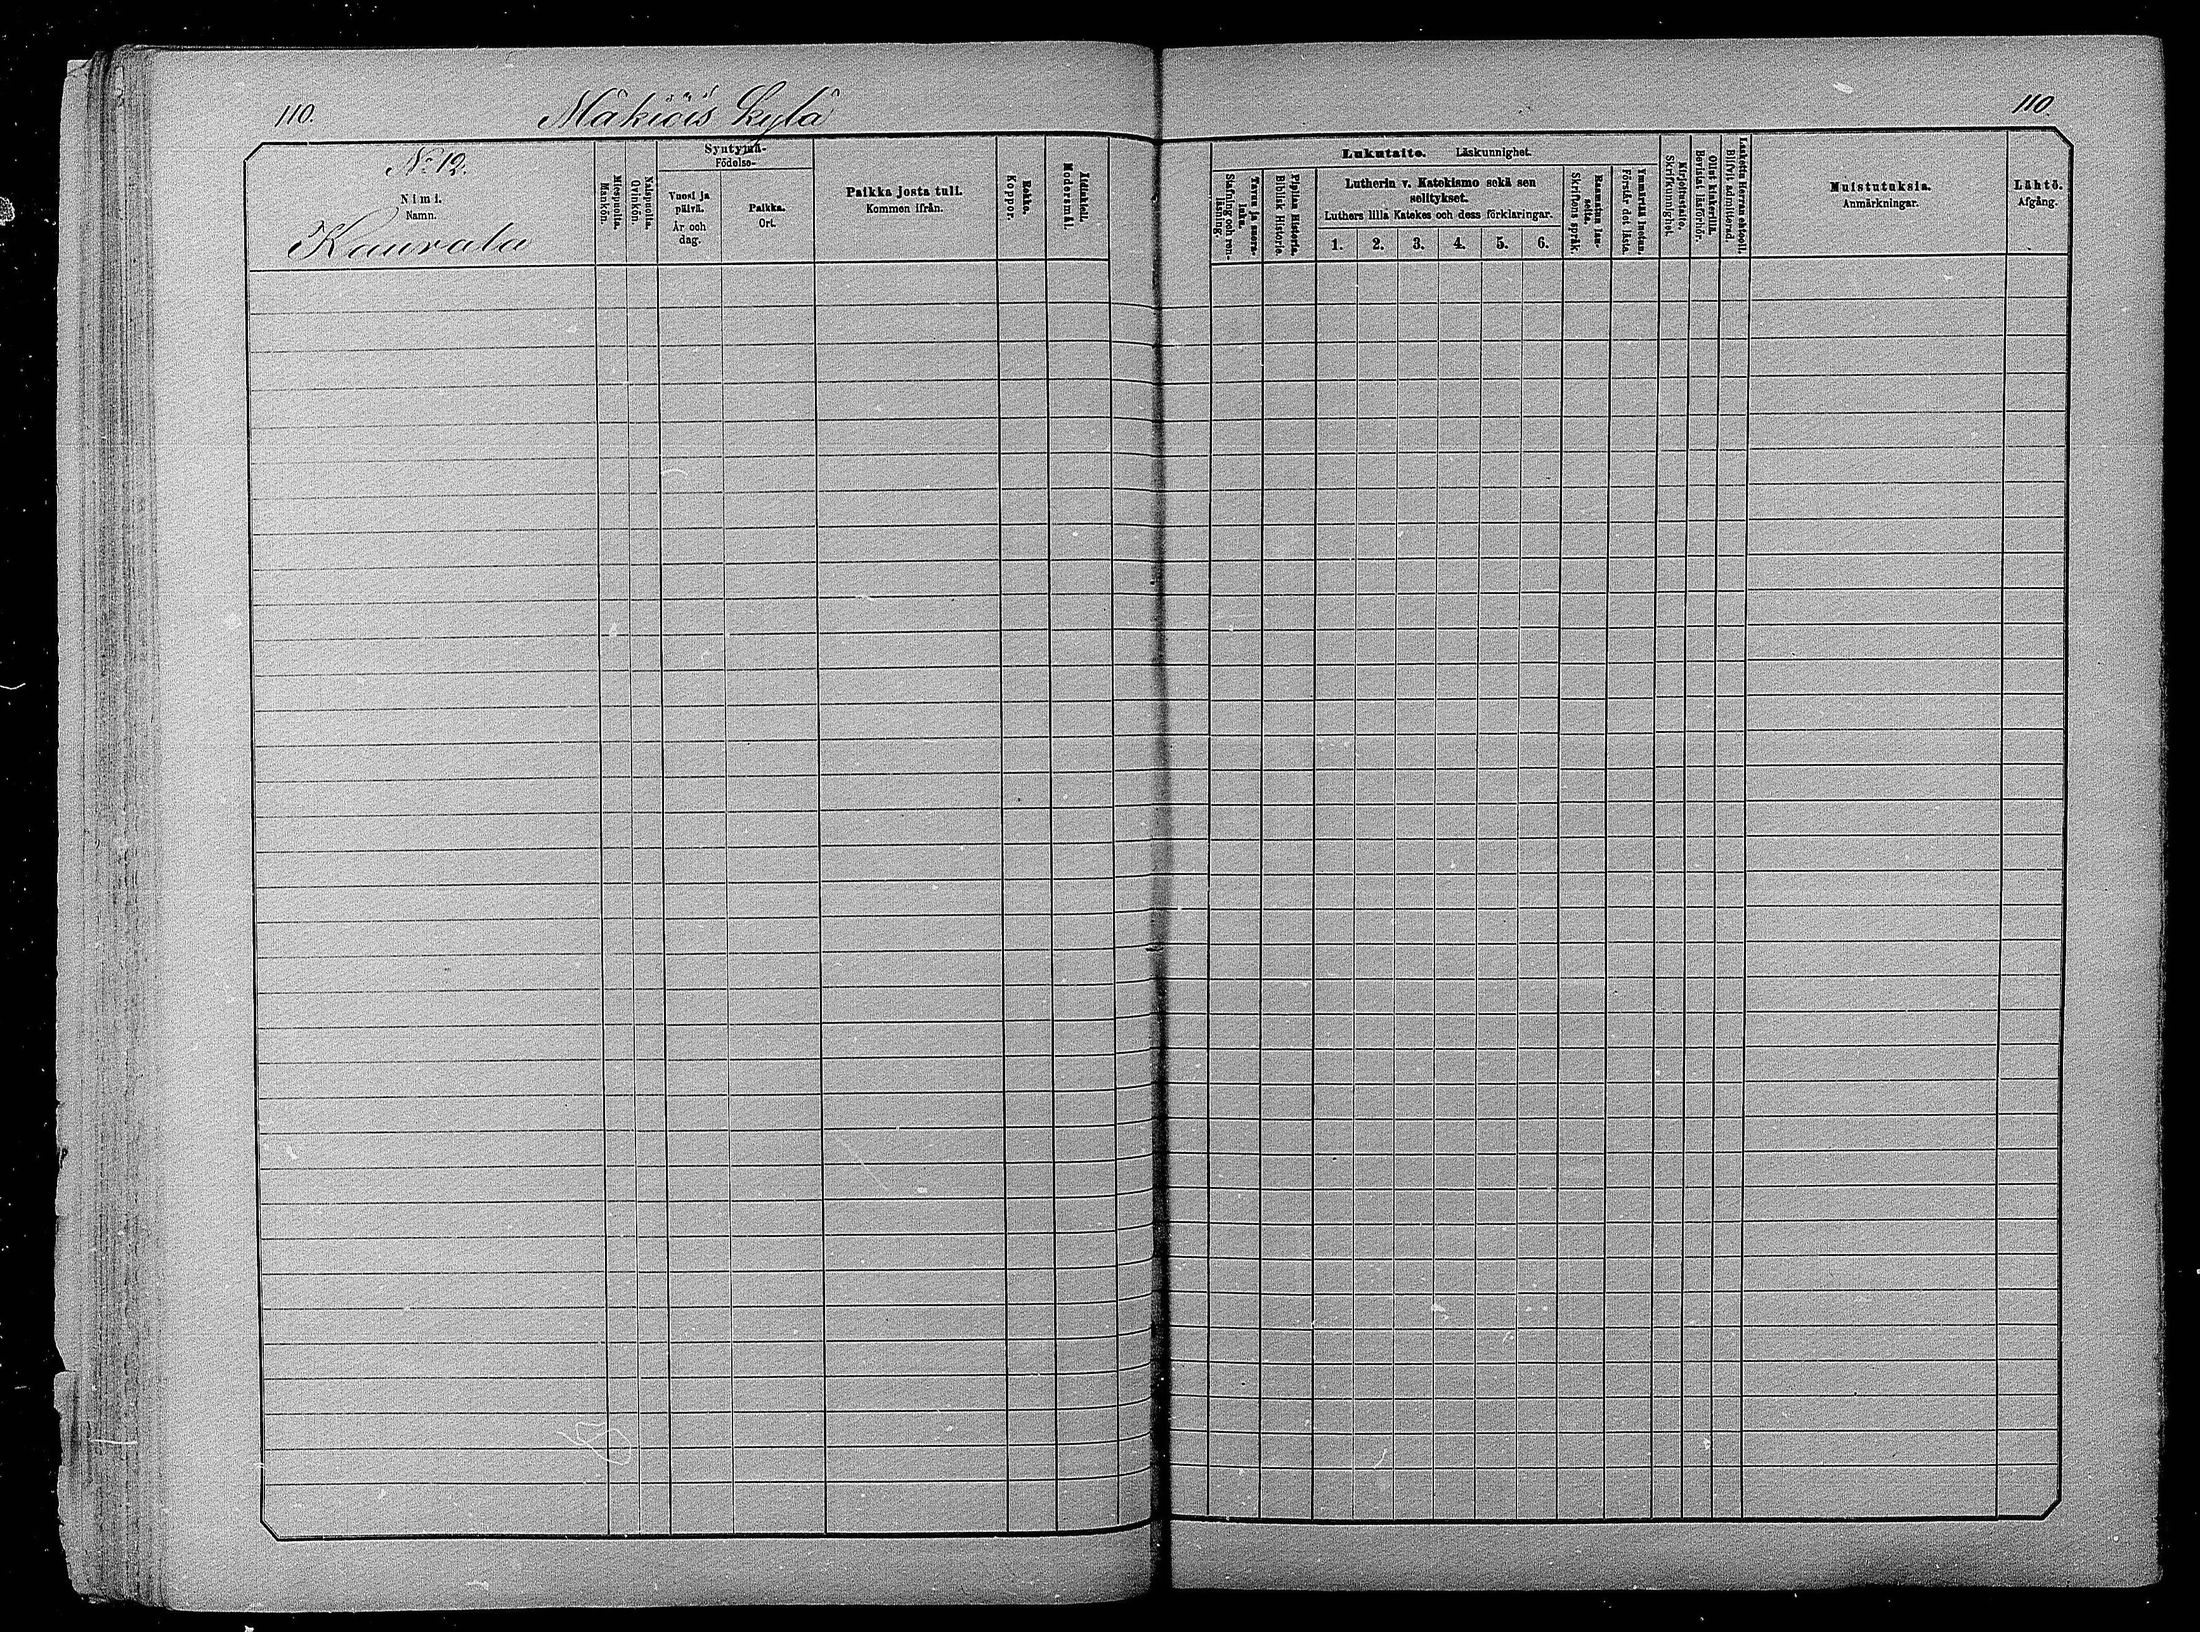 110.
Mäkiöis kylä
110.
No 12.
Nimi.
Namn.
Kaurala
Miespuolia.
Mankön.
Naispuolia.
Qvinkön.
Syntymä-
Födelse-
Vuosi ja
päivä.
År och
dag.
Paikka.
Ort.
Paikka josta tuli.
Kommen ifrån.
Rokko.
Koppor.
Äidinkieli.
Modersmål.
Lukutaito. Läskunnighet.
Tavuu ja suora-
luku.
Stafning och ren-
läsning.
Piplian Historia.
Biblisk Historie.
Lutherin v. Katekismo sekä sen
selitykset.
Luthers lilla Katekes och dess förklaringar.
1. 2. 3. 4. 5. 6.
Raamatun lau-
seita.
Skriftens språk.
Ymmärtää lukun.
Förstår det lästa.
Kirjoitustaito.
Skrifkunnighet.
Ollut kinkerillä.
Bevistat läsförhör.
Laskettu Herran ehtooll.
Blifvit admitterad.
Muistutuksia.
Anmärkningar.
Lähtö.
Afgång.